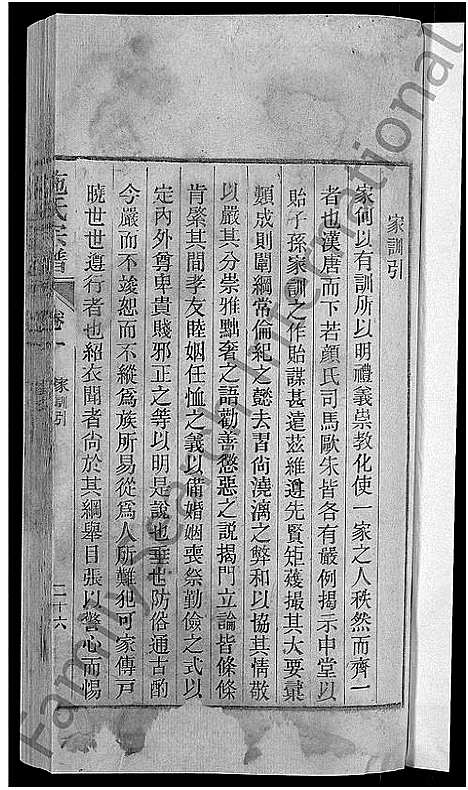 家訓引
家何以有訓所以明禮義崇教化使一家之人秩然而齊一
者也漢唐而下若顏氏司馬歐朱皆各有嚴例揭示中堂以
貽子孫家訓之作貽謀甚遠茲維遵先賢矩矱撮其大要彙
類成則闡綱常倫紀之懿去習尙澆漓之弊和以協其情敬
以嚴其分崇雅黜奢之語勸善懲惡之說揭門立論皆條條
肯綮其間孝友睦姻任恤之義以備婚姻喪祭勤儉之式以
定內外尊卑貴賤邪正之等以明是說也垂世防俗通古酌
今嚴而不竣恕而不縱爲族所易從爲人所難犯可家傳戸
曉世世遵行者也紹衣聞者尙於其綱舉目張以警心而惕
施氏宗譜
卷一
家訓引
二十六
FamilySearch International